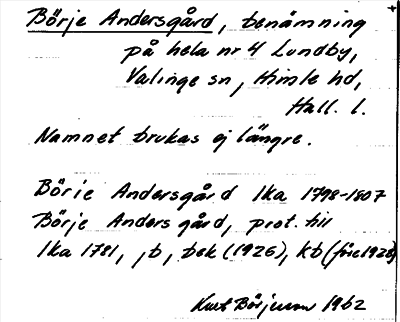 Börje Andersgård, benämning
på hela nr 4 Lundby,
Valinge sn, Himle hd,
Hall. l.
Namnet brukas ej längre.
Börje Andersgård lka 1798-1807
Börje Anders gård, prot. till
lka 1781, jb, bek (1926), kb (före 1928)
Kurt Börjesson 1962